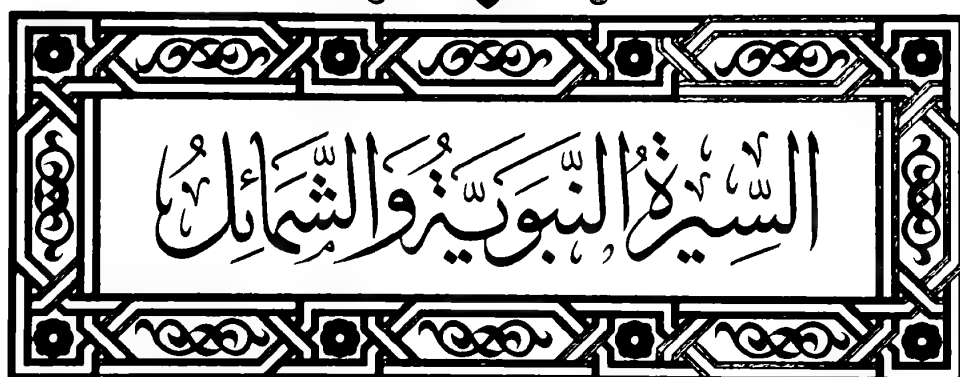 السِّيرَةُ النَّبَوِيَّةُ وَالشَّمَائِلُ